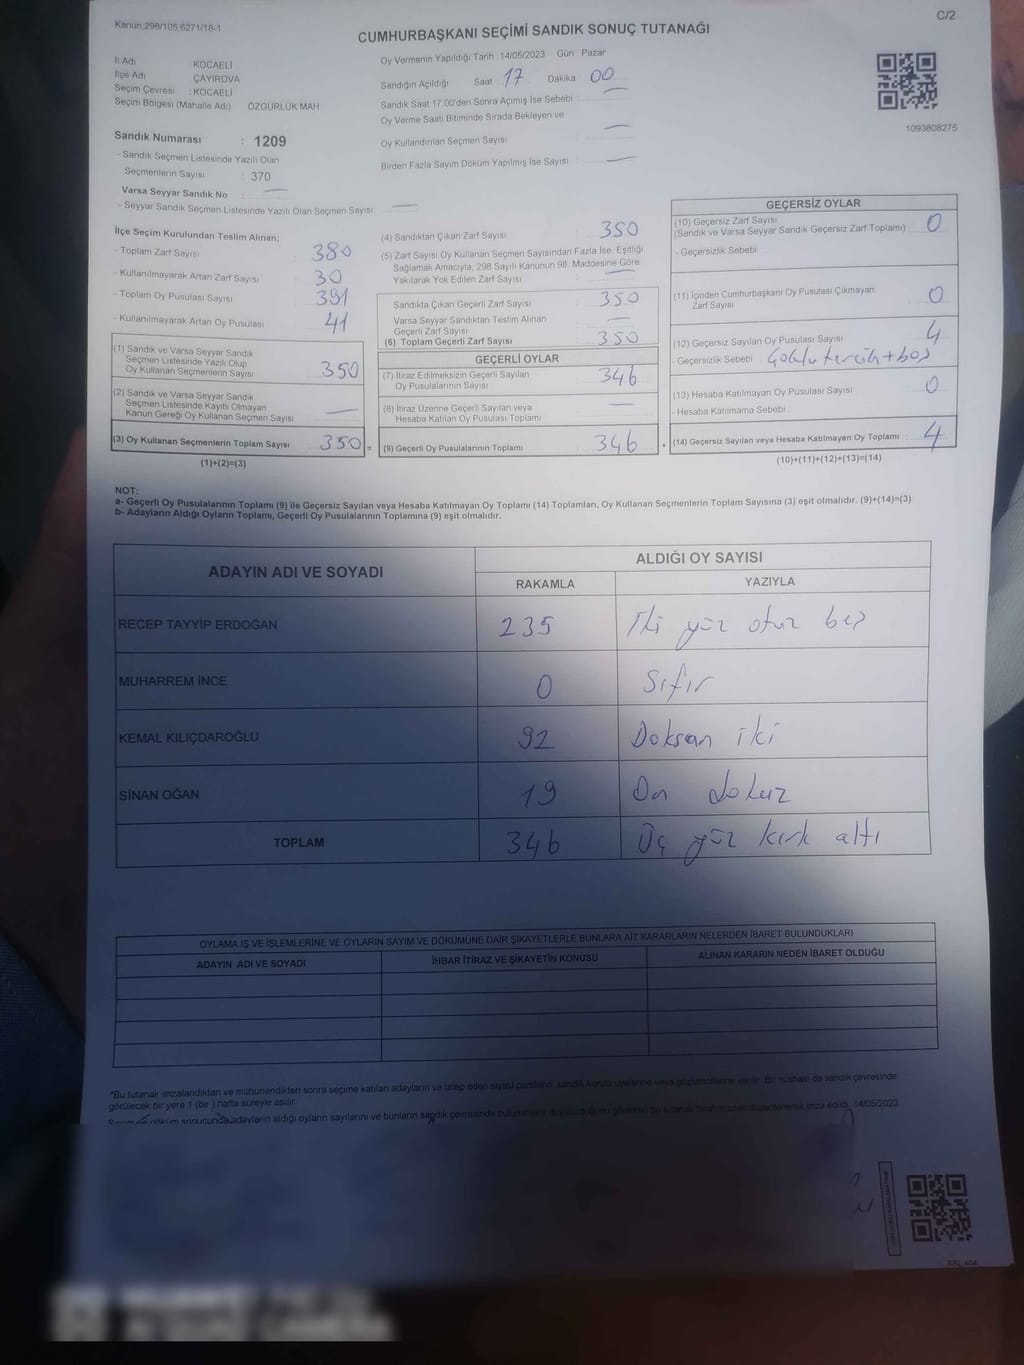 Kanun:298/105,6271/18-1
C/2
CUMHURBAŞKANI SEÇİMİ SANDIK SONUÇ TUTANAĞI
İl Adı KOCAELİ
İlçe Adı ÇAYIROVA
Seçim Çevresi : KOCAELİ
Seçim Bölgesi (Mahalle Adı) ÖZGÜRLÜK MAH
Oy Vermenin Yapıldığı Tarih :14/05/2023 Gün : Pazar
Sandığın Açıldığı Saat 17 Dakika 00
Sandık Saat 17.00'den Sonra Açılmış İse Sebebi :
Oy Verme Saati Bitiminde Sırada Bekleyen ve
Oy Kullandırılan Seçmen Sayısı
Birden Fazla Sayım Döküm Yapılmış İse Sayısı
1093808275
Sandık Numarası : 1209
- Sandık Seçmen Listesinde Yazılı Olan
Seçmenlerin Sayısı : 370
Varsa Seyyar Sandık No :
- Seyyar Sandık Seçmen Listesinde Yazılı Olan Seçmen Sayısı:
İlçe Seçim Kurulundan Teslim Alınan;
- Toplam Zarf Sayısı 380
- Kullanılmayarak Artan Zarf Sayısı 30
- Toplam Oy Pusulası Sayısı 391
- Kullanılmayarak Artan Oy Pusulası 41
(1) Sandık ve Varsa Seyyar Sandık
Seçmen Listesinde Yazılı Olup
Oy Kullanan Seçmenlerin Sayısı 350
(2) Sandık ve Varsa Seyyar Sandık
Seçmen Listesinde Kayıtlı Olmayan
Kanun Gereği Oy Kullanan Seçmen Sayısı
(3) Oy Kullanan Seçmenlerin Toplam Sayısı 350 =
(1)+(2)=(3)
(4) Sandıktan Çıkan Zarf Sayısı 350
(5) Zarf Sayısı Oy Kullanan Seçmen Sayısından Fazla İse, Eşitliği
Sağlamak Amacıyla; 298 Sayılı Kanunun 98. Maddesine Göre
Yakılarak Yok Edilen Zarf Sayısı
Sandıkta Çıkan Geçerli Zarf Sayısı 350
Varsa Seyyar Sandıktan Teslim Alınan
Geçerli Zarf Sayısı
(6) Toplam Geçerli Zarf Sayısı 350
GEÇERLİ OYLAR
(7) İtiraz Edilmeksizin Geçerli Sayılan
Oy Pusulalarının Sayısı 346
(8) İtiraz Üzerine Geçerli Sayılan veya
Hesaba Katılan Oy Pusulası Toplamı
(9) Geçerli Oy Pusulalarının Toplamı 346 +
GEÇERSİZ OYLAR
(10) Geçersiz Zarf Sayısı
(Sandık ve Varsa Seyyar Sandık Geçersiz Zarf Toplamı) 0
- Geçersizlik Sebebi
(11) İçinden Cumhurbaşkanı Oy Pusulası Çıkmayan
Zarf Sayısı 0
(12) Geçersiz Sayılan Oy Pusulası Sayısı 4
- Geçersizlik Sebebi Çoklu tercih+boş
(13) Hesaba Katılmayan Oy Pusulası Sayısı 0
- Hesaba Katılmama Sebebi :
(14) Geçersiz Sayılan veya Hesaba Katılmayan Oy Toplamı : 4
(10)+(11)+(12)+(13)=(14)
NOT:
a- Geçerli Oy Pusulalarının Toplamı (9) ile Geçersiz Sayılan veya Hesaba Katılmayan Oy Toplamı (14) Toplamları, Oy Kullanan Seçmenlerin Toplam Sayısına (3) eşit olmalıdır. (9)+(14)=(3)
b- Adayların Aldığı Oyların Toplamı, Geçerli Oy Pusulalarının Toplamına (9) eşit olmalıdır.
ADAYIN ADI VE SOYADI
ALDIĞI OY SAYISI
RAKAMLA YAZIYLA
RECEP TAYYİP ERDOĞAN 235 İki yüz otuz beş
MUHARREM İNCE 0 Sıfır
KEMAL KILIÇDAROĞLU 92 Doksan iki
SİNAN OĞAN 19 On dokuz
TOPLAM 346 Üç yüz kırk altı
OYLAMA İŞ VE İŞLEMLERİNE VE OYLARIN SAYIM VE DÖKÜMÜNE DAİR ŞİKAYETLERLE BUNLARA AİT KARARLARIN NELERDEN İBARET BULUNDUKLARI
ADAYIN ADI VE SOYADI İHBAR İTİRAZ VE ŞİKAYETİN KONUSU ALINAN KARARIN NEDEN İBARET OLDUĞU
*Bu tutanak imzalandıktan ve mühürlendikten sonra seçime katılan adayların ve talep eden siyasi partilerin sandık kurulu üyelerine veya gözlemcilerine verilir. Bir nüshası da sandık çevresinde
görülecek bir yere 1 (bir ) hafta süreyle asılır.
döküm sonucunda adayların aldığı oyların sayılarını ve bunların sandık çevresinde imza edildi. 14/05/2023